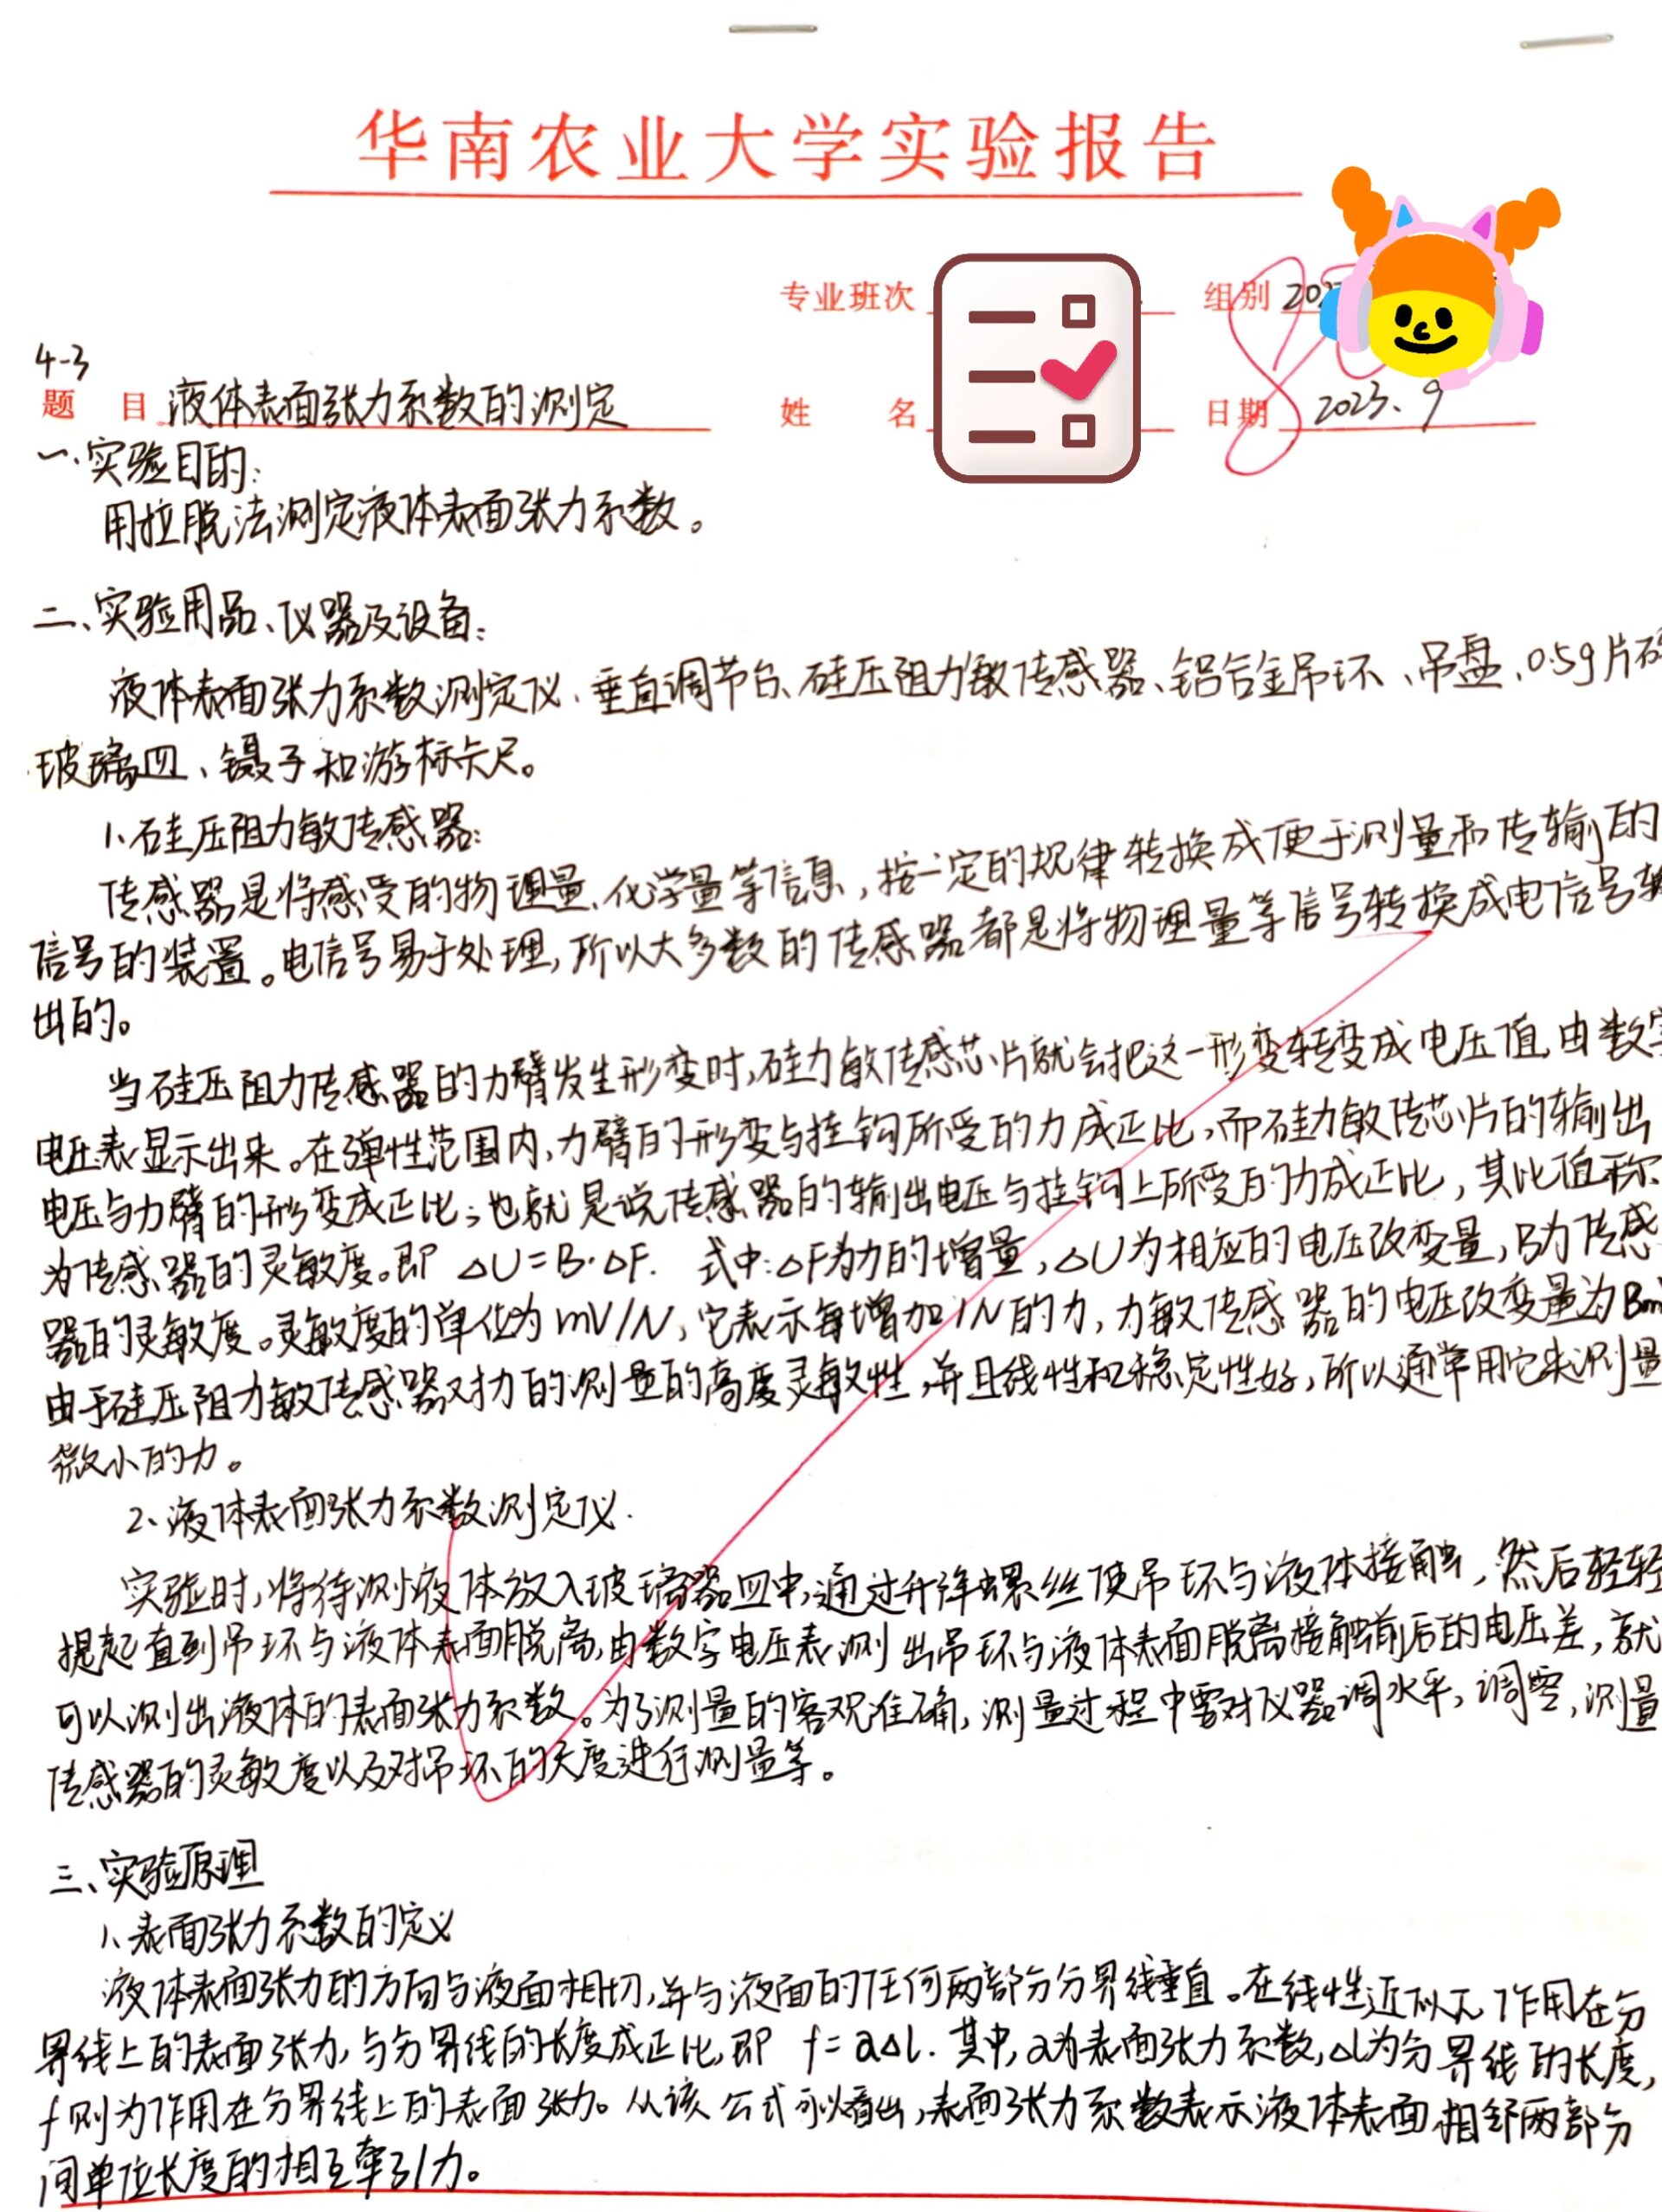 华南农业大学实验报告
专业班次 组别 202
4-3
题 目 液体表面张力系数的测定 姓 名 日期 2023.9
一、实验目的:
用拉脱法测定液体表面张力系数。
二、实验用品、仪器及设备:
液体表面张力系数测定仪、垂直调节台、硅压阻力敏传感器、铝合金吊环、吊盘、0.5g片砝
玻璃皿、镊子和游标卡尺。
1.硅压阻力敏传感器:
传感器是将感受的物理量、化学量等信息,按一定的规律转换成便于测量和传输的
信号的装置。电信号易于处理,所以大多数的传感器都是将物理量等信号转换成电信号输
出的。
当硅压阻力传感器的力臂发生形变时,硅力敏传感芯片就会把这一形变转变成电压值,由数字
电压表显示出来。在弹性范围内,力臂的形变与挂钩所受的力成正比,而硅力敏传芯片的输出
电压与力臂的形变成正比;也就是说传感器的输出电压与挂钩上所受的力成正比,其比值称
为传感器的灵敏度。即 △U=B·△F. 式中:△F为力的增量,△U为相应的电压改变量,B为传感
器的灵敏度。灵敏度的单位为mV/N,它表示每增加1N的力,力敏传感器的电压改变量为Bm
由于硅压阻力敏传感器对力的测量的高度灵敏性,并且线性和稳定性好,所以通常用它来测量
微小的力。
2、液体表面张力系数测定仪.
实验时,将待测液体放入玻璃器皿中,通过升降螺丝使吊环与液体接触,然后轻轻
提起直到吊环与液体表面脱离,由数字电压表测出吊环与液体表面脱离接触前后的电压差,就
可以测出液体的表面张力系数。为了测量的客观准确,测量过程中需对仪器调水平,调零,测量
传感器的灵敏度以及对吊环的长度进行测量等。
三、实验原理
1、表面张力系数的定义
液体表面张力的方向与液面相切,并与液面的任何两部分分界线垂直。在线性近似下,作用在分
界线上的表面张力,与分界线的长度成正比,即 f=a△l. 其中,a为表面张力系数,△l为分界线的长度,
f则为作用在分界线上的表面张力。从该公式可以看出,表面张力系数表示液体表面相邻两部分
间单位长度的相互牵引力。